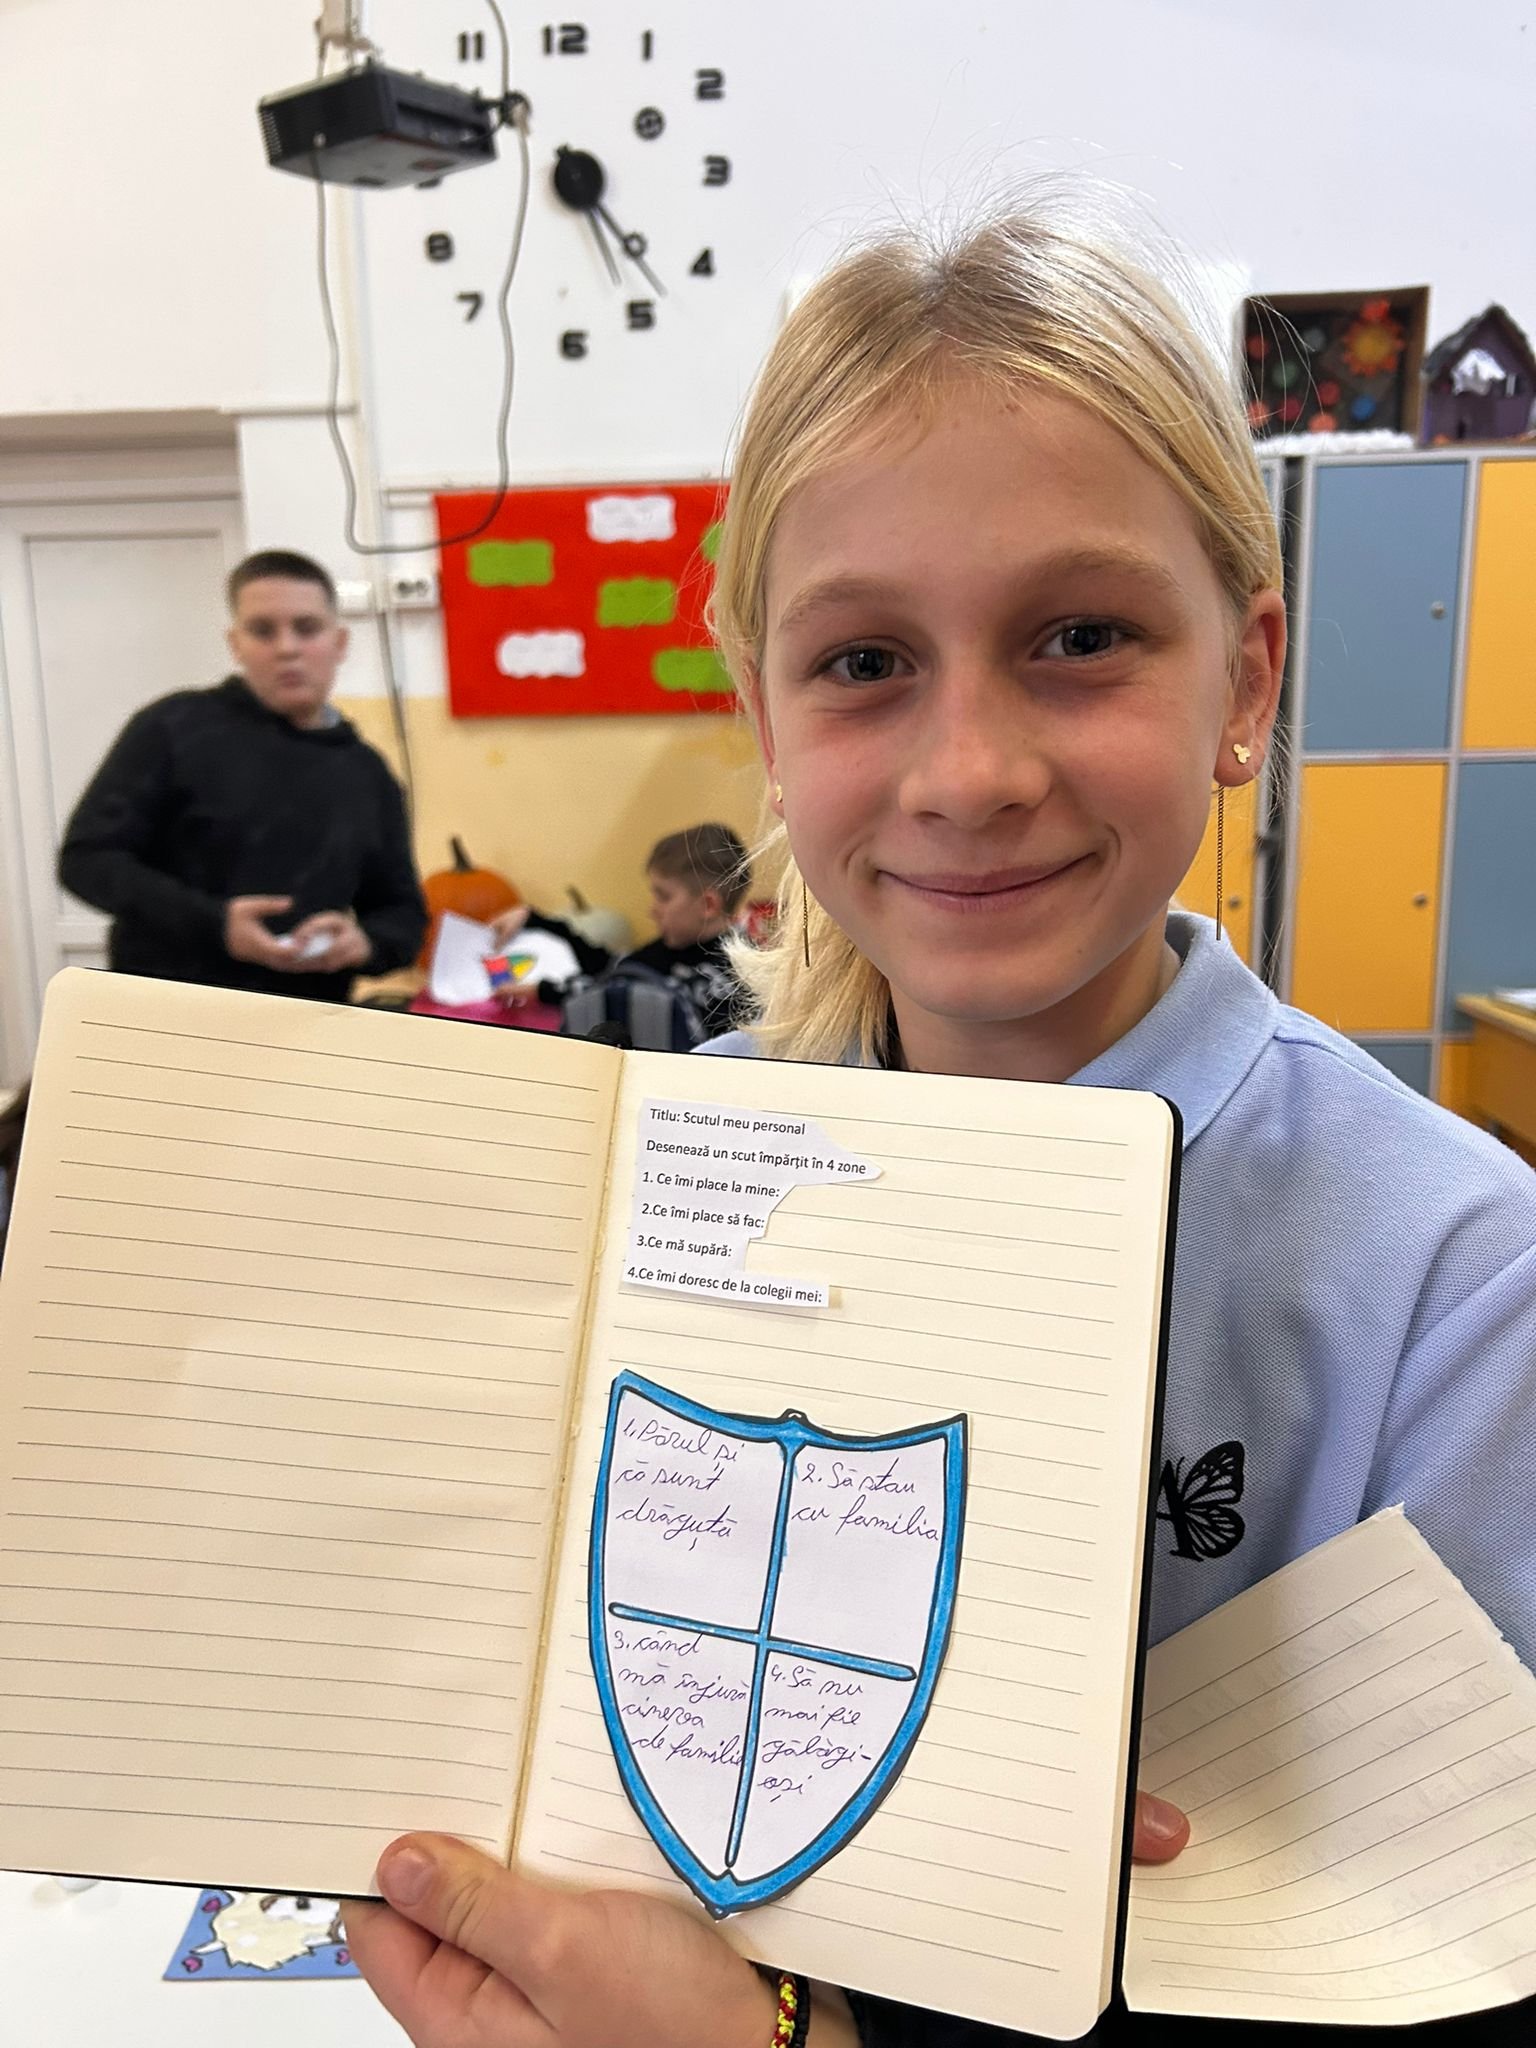 11
12
1
2
3
4
5
6
7
8
Titlu: Scutul meu personal
Desenează un scut împărțit în 4 zone
1. Ce îmi place la mine:
2.Ce îmi place să fac:
3.Ce mă supără:
4.Ce îmi doresc de la colegii mei:
1. Părul și
că sunt
drăguță
2. Să stau
cu familia
3. când
mă înjură
cineva
de familie
4. Să nu
mai fie
gălăgi-
oși